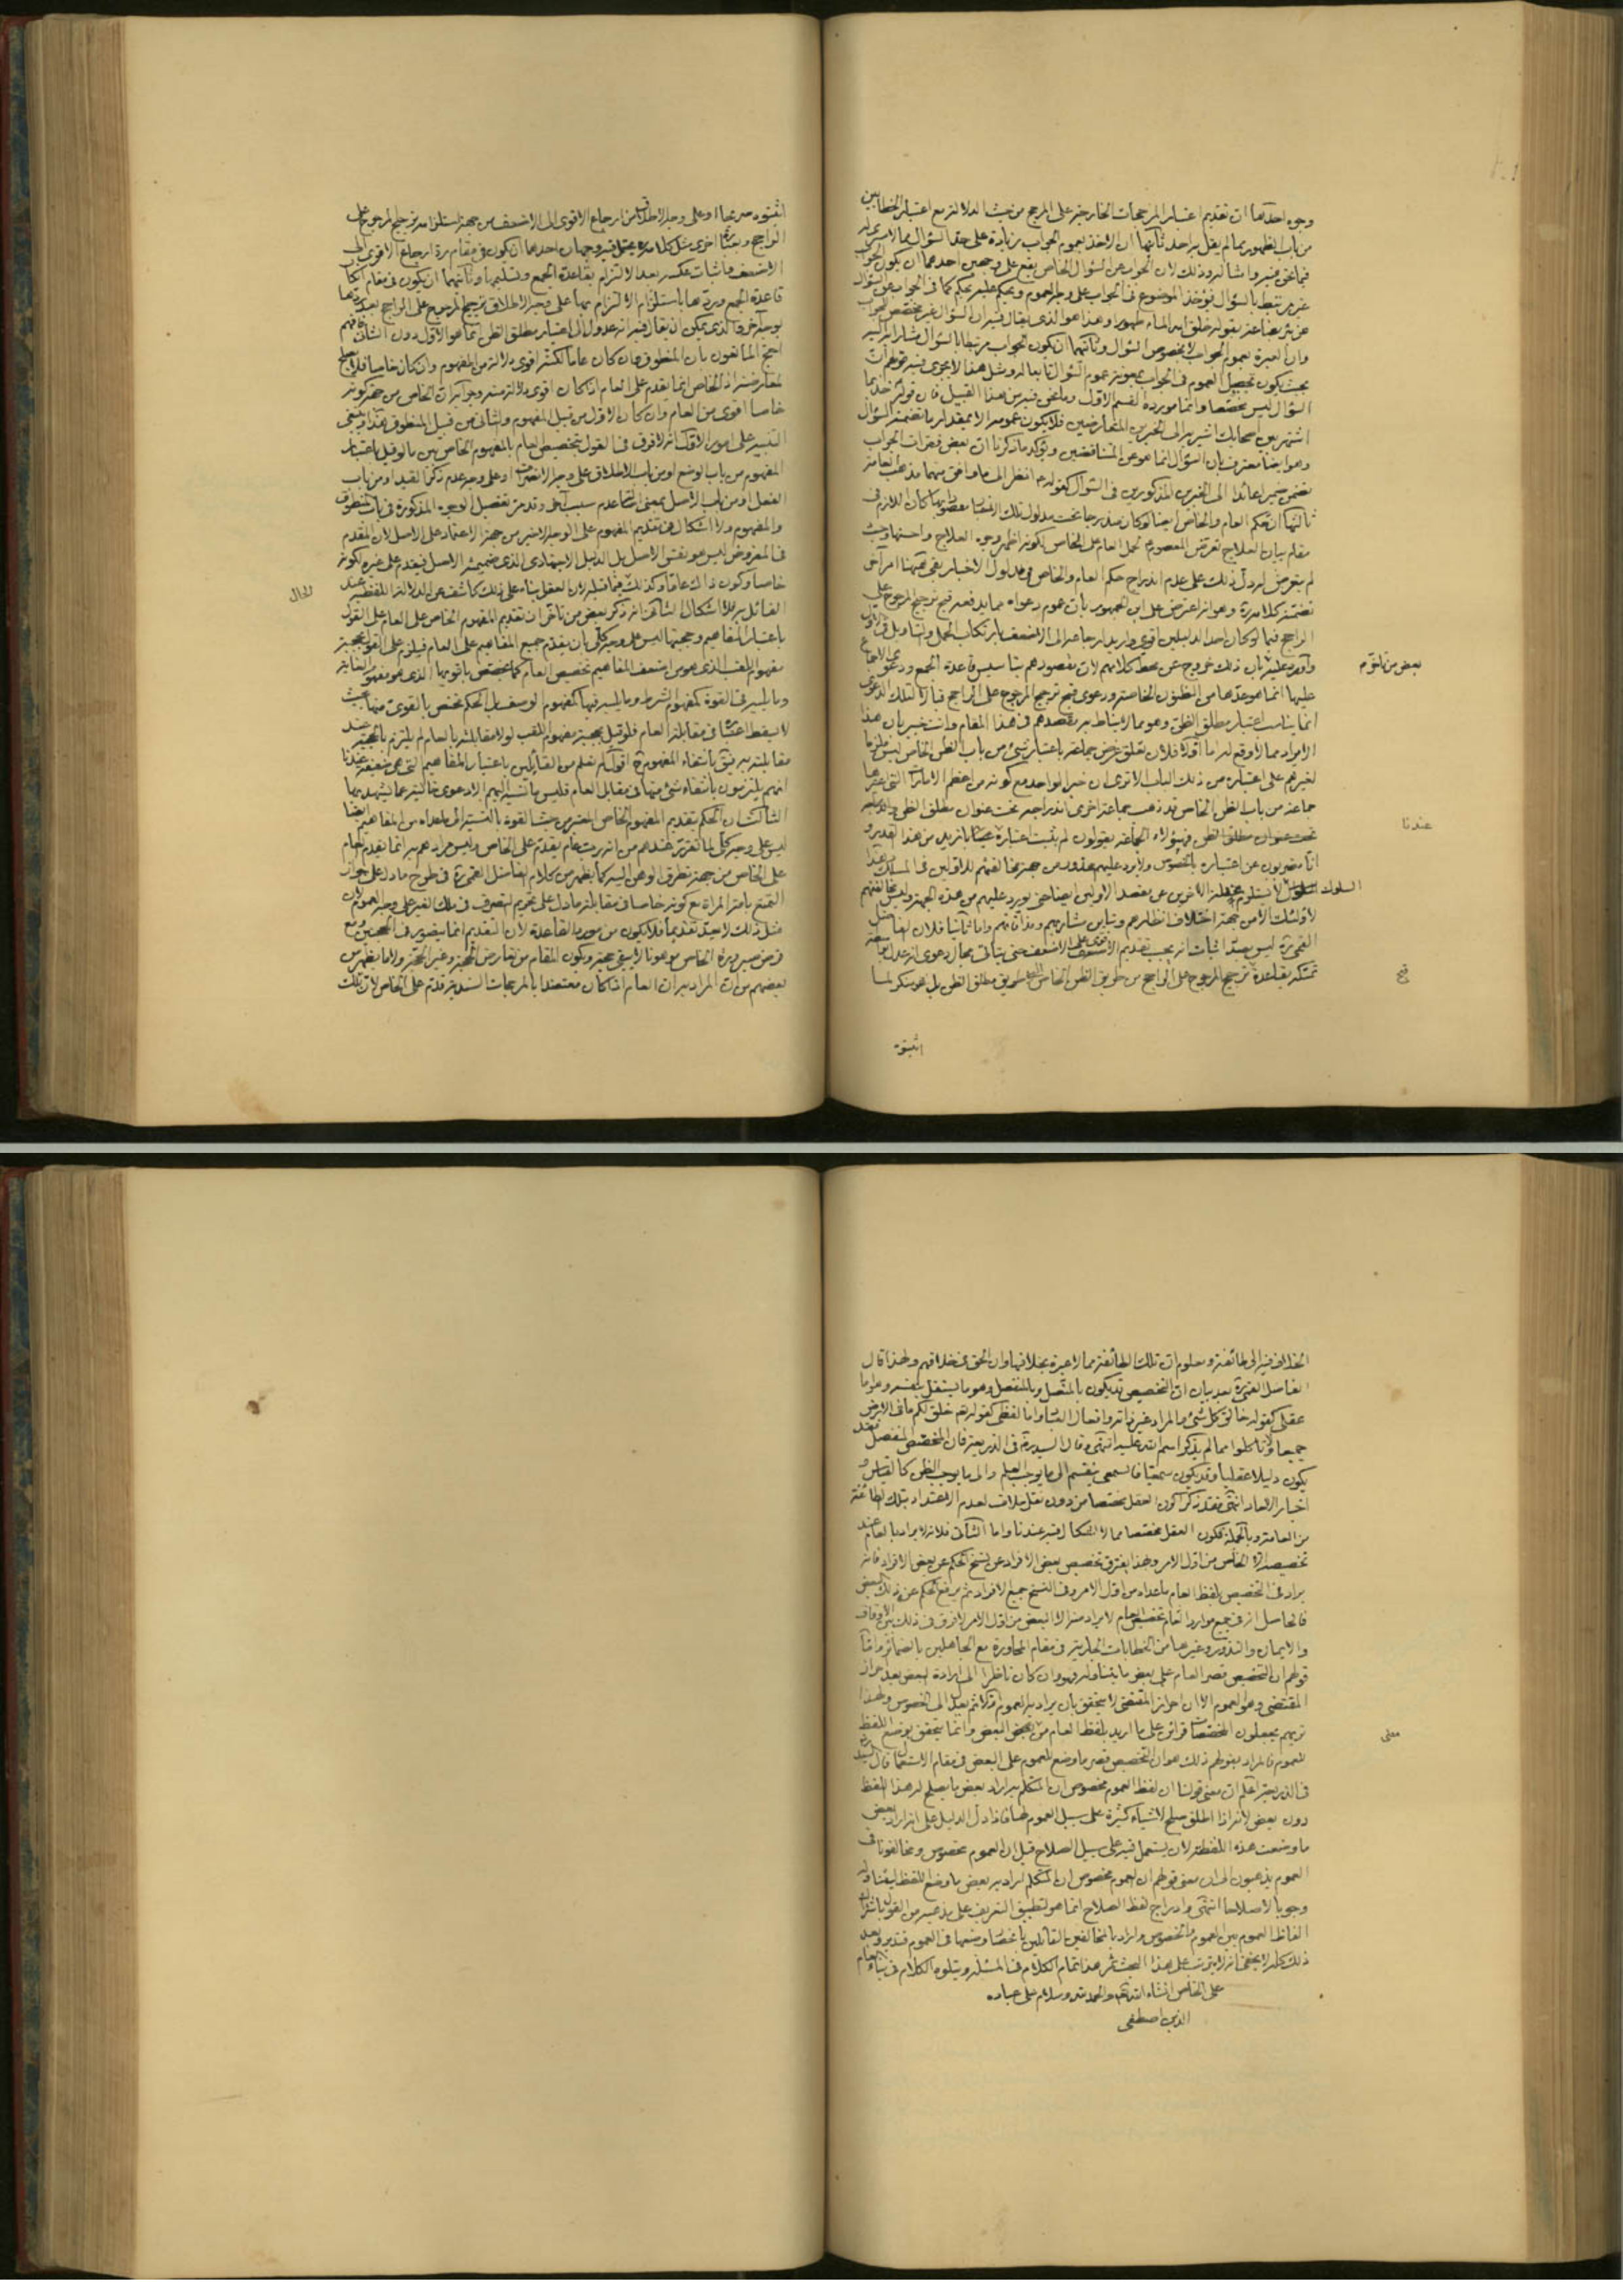 وجوه احدها ان تقديم اعتبار المرجحات الخارجية على المرجح من حيث الدلالة مع اعتبار الخطابين
من باب الظهور مما لم يقل به احد ثانيها ان الاخذ بعموم الجواب زيادة على
فيما نحن فيه وامثاله وذلك لان الجواب عن السؤال الخاص يقع على وجهين احدهما ان يكون الجواب
غير مرتبط بالسؤال فيؤخذ الموضوع في الجواب على وجه العموم ويحكم عليه بحكم كما في الجواب عن السؤال
عن بئر بضاعة بقوله خلق الله الماء طهورا وهذا هو الذي يقال فيه ان السؤال غير مخصص للجواب
وان العبرة بعموم الجواب لا بخصوص السؤال وثانيهما ان يكون الجواب مرتبطا بالسؤال
بحيث يكون تحصيل العموم في الجواب بمعونة عموم السؤال ومثل هذا لا يجري فيه قولهم ان
السؤال ليس مخصصا وانما مورده القسم الاول وما نحن فيه من هذا القبيل فان قوله خذ بما
اشتهر بين اصحابك اشير به الى الخبرين المتعارضين فلا يكون عمومه الا بمقدار ما تضمنه السؤال
وهو ايضا معترف بان السؤال انما هو عن المتناقضين ويؤكد ما ذكرنا ان بعض فقرات الجواب
تضمن ضميرا عائدا الى الخبرين المذكورين في السؤال كقوله انظر الى ما وافق منهما مذهب العامة
ثالثها ان حكم العام والخاص ايضا لو كان مندرجا تحت مدلول تلك الاخبار
مقام بيان العلاج تعرض المعصوم لحمل العام على الخاص لكونه اظهر وجوه العلاج واحسنها وحيث
لم يتعرض له دل ذلك على عدم اندراج حكم العام والخاص في مدلول الاخبار بقي هيهنا امر اخر
تضمنه كلامه وهو انه اعترض على ابن الجمهور بان عموم دعواه مما يدفعه قبح ترجيح المرجوح على
الراجح فيما لو كان احد الدليلين اقوى واريد ارجاعه الى الاضعف بارتكاب الحمل والتاويل في
واورد عليه بان ذلك خروج عن محط كلامهم لان مقصودهم بتاسيس قاعدة الجمع ودعوى الاجماع
بعض من القوم
عليها انما هو عدها من الظنون الخاصة ودعوى قبح ترجيح المرجوح على الراجح
انما يناسب اعتبار مطلق الظن وهو مما لا يناط به مقصدهم في هذا المقام وانت خبير بان هذا
الايراد مما لا وقع له اما اولا فلان تعلق غرض جماعة باعتبار شيء من باب الظن الخاص ليس
لغيرهم على اعتباره من ذلك الباب الا ترى ان خبر الواحد مع كونه من اعظم الامارات التي
جماعة من باب الظن الخاص قد ذهب جماعة اخرى الى اندراجه تحت عنوان مطلق الظن
تحت عنوان مطلق الظن فهؤلاء الجماعة يقولون لم يثبت اعتباره
عندنا
من جهة مخالفتهم للاولين في المسلك
السلوك
لا يستلزم
لاولئك الامن جهة اختلاف انظارهم وتباين مشاربهم واما ثانيا فلان الفاضل
القمي ره ليس بصدد اثبات انه يجب تقديم
قبح
تمسكه بقاعدة ترجيح المرجوح على الراجح من طريق الظن الخاص
اثبتوه
اثبتوه صريحا او على وجه الاطلاق من ارجاع الاقوى الى الاضعف من جهة استلزامه ترجيح المرجوح على
الراجح وبعبارة اخرى مثل كلامه يحتمل فيه وجهان احدهما ان يكون في مقام رد ارجاع الاقوى الى
الاضعف واثبات عكسه بعد الالتزام بقاعدة الجمع وتسليمها وثانيهما ان يكون في مقام انكار
قاعدة الجمع وردها باستلزام الالتزام بها على وجه الاطلاق ترجيح المرجوح على الراجح
بوجه اخر والذي يمكن ان يقال فيه انه عدول الى اعتبار مطلق الظن انما هو الاول دون الثاني فافهم
احتج المانعون بان المنطوق وان كان عاما لكنه اقوى دلالة من المفهوم وان كان خاصا فلا يصلح
لمعارضته اذ الخاص انما يقدم على العام اذا كان اقوى دلالة منه وجوابه ان الخاص من جهة كونه
خاصا اقوى من العام وان كان الاول من قبيل المفهوم والثاني من قبيل المنطوق هذا وينبغي
التنبيه على امور الاول انه لا فرق في القول بتخصيص العام بالمفهوم الخاص بين ما لو قيل باعتبار
المفهوم من باب الوضع او من باب الاطلاق على وجه الانصراف او على وجه عدم ذكر القيد او من باب
العقل او من باب الاصل بمعنى اصالة عدم سبب اخر وقد مر تفصيل الوجوه المذكورة في باب المنطوق
والمفهوم ولا اشكال في تقديم المفهوم على الوجه الاخير من جهة الاعتماد على الاصل لان المقدم
في المفروض ليس هو نفس الاصل بل الدليل الاجتهادي الذي ضميمته الاصل فيقدم على غيره لكونه
خاصا وكون ذاك عاما وكذلك فيما قبله لان العقل بناء على ذلك كاشف عن الدلالة اللفظية عند
للحال
القائل به فلا اشكال الثاني انه ذكر بعض من تأخر ان تقديم المفهوم الخاص على العام على القول
باعتبار المفاهيم وحجيتها ليس على وجه كلي بان يقدم جميع المفاهيم على العام فيلزم على القول بحجية
مفهوم اللقب الذي هو من اضعف المفاهيم تخصيص العام كما يخصص باقويها الذي هو مفهوم الغاية
وما يليه في القوة كمفهوم الشرط وما يليه فيها كمفهوم الوصف بل الحكم مختص بالقوي منها بحيث
لا يسقط اعتباره في مقابلة العام فلو قيل بحجية مفهوم اللقب لولا مقابلته بالعام لم يلتزم بالحجية عند
مقابلته به فيتوقف بانتفاء المفهوم اقول لم نعلم من القائلين باعتبار المفاهيم التي هي ضعيفة عندنا
انهم يلتزمون بانتفاء شيء منها في مقابل العام فليس ما نسبه اليهم الا دعوى خالية عما يشهد بها
الثالث ان الحكم بتقديم المفهوم الخاص المعتبر من حيث القوة بالنسبة الى ما عداه من المفاهيم ايضا
ليس على وجه كلي لما تقرر عندهم من انه رب عام يقدم على الخاص وليس مرادهم به انما يقدم العام
على الخاص من جهة تطرق الوهن اليه كما يظهر من كلام الفاضل القمي ره في طرح ما دل على جواز
التمتع بامة المراة مع كونه خاصا في مقابلة ما دل على تحريم التصرف في ملك الغير على وجه العموم لان
مثل ذلك لا يعد تقديما فلا يكون من مورد القاعدة لان التقديم انما يتصور في الحجتين ومع
فرض صيرورة الخاص موهونا لا يبقى حجة ويكون المقام من تعارض الحجة وغير الحجة ولا ما يظهر من
بعضهم من ان المراد به ان العام اذا كان معتضدا بالمرجحات السندية قدم على الخاص لان تلك
الخلاف فيه الى طائفة ومعلوم ان تلك الطائفة مما لا عبرة بخلافها وان الحق في خلافهم ولهذا قال
الفاضل القمي ره بعد بيان ان التخصيص قد يكون بالمتصل وبالمنفصل وهو ما يستقل بنفسه وهو اما
عقلي كقوله خالق كل شيء والمراد غير ذاته وافعال العباد واما لفظي كقوله تعالى خلق لكم ما في الارض
جميعا ولا تاكلوا مما لم يذكر اسم الله عليه انتهى وقال السيد ره في الذريعة فان المخصص المنفصل فقد
يكون دليلا عقليا وقد يكون سمعيا فالسمعي ينقسم الى ما يوجب العلم والى ما يوجب الظن كالقياس و
اخبار الاحاد انتهى فقد ذكرا كون العقل مخصصا من دون نقل خلاف لعدم الاعتداد بتلك الطائفة
من العامة وبالجملة فكون العقل مخصصا مما لا اشكال فيه عندنا واما الثاني فلانه لا يراد بالعام عند
تخصيصه الا الخاص من اول الامر وبهذا يفترق تخصيص بعض الافراد عن نسخ الحكم عن بعض الافراد فانه
يراد في التخصيص بلفظ العام ما عداه من اول الامر وفي النسخ جميع الافراد ثم يرفع الحكم عن ذلك البعض
فالحاصل انه في جميع موارد العام لا يراد منه الا البعض من اول الامر لا فرق في ذلك بين الاوقاف
والايمان والنذور وغيرها من الخطابات الجارية في مقام المحاورة مع الجاهلين بالضمائر واما
قولهم ان التخصيص قصر العام على بعض ما يتناوله فهو وان كان ناظرا الى ارادة البعض بعد احراز
المقتضي وهو العموم الا ان احراز المقتضي لا يتحقق بان يراد به العموم اولا ثم يعدل الى الخصوص ولهذا
تريهم يجعلون المخصصات قرائن على ما اريد بلفظ العام من معنى البعض وانما يتحقق بوضع اللفظ
معنى
للعموم فالمراد بقولهم ذلك هو ان التخصيص قصر ما وضع للعموم على البعض في مقام الاستعمال قال السيد
في الذريعة اعلم ان معنى قولنا ان لفظ العموم مخصوص ان المتكلم به اراد بعض ما يصلح له هذا اللفظ
دون بعض لانه اذا اطلق صلح لاشياء كثيرة على سبيل العموم لها فاذا دل الدليل على انه اراد بعض
ما وضعت هذه اللفظة لان يستعمل فيه على سبيل الصلاح قيل ان العموم مخصوص ومخالفونا في
العموم يذهبون الى ان معنى قولهم ان العموم مخصوص ان المتكلم اراد به بعض ما وضع اللفظ ليتناوله
وجوبا لا صلاحا انتهى وادراج لفظ الصلاح انما هو لتطبيق التعريف على مذهبه من القول باشتراك
الفاظ العموم بين العموم والخصوص واراد بالمخالفين القائلين باختصاص وضعها في العموم فتدبر وبعد
ذلك كله لا يخفى انه لا يترتب على هذا البحث ثمرة هذا تمام الكلام في المسئلة ويتلوه الكلام في بناء العام
على الخاص انشاء الله تعالى والحمد لله وسلام على عباده
الذين اصطفى